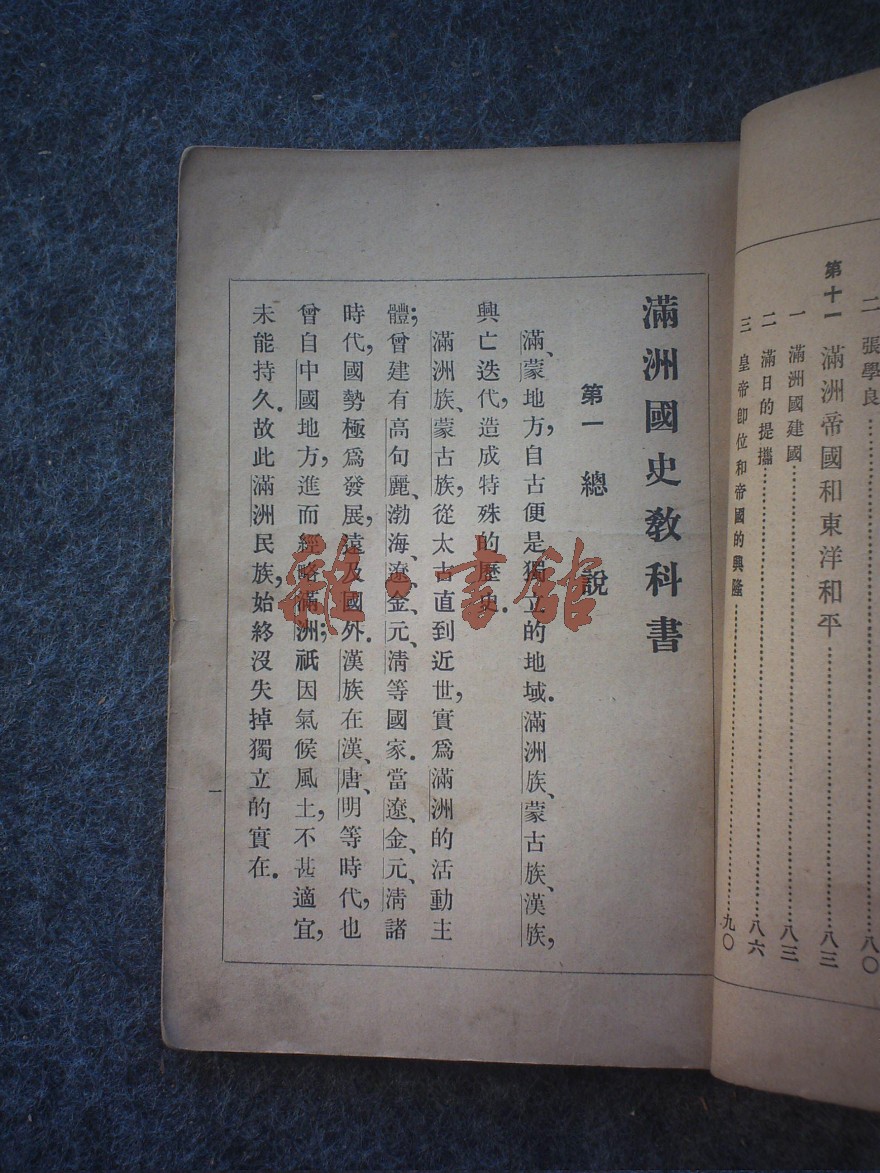 二 張學良……八〇
第十一 滿洲帝國和東洋和平……八三
一 滿洲國建國……八三
二 滿日的提攜……八六
三 皇帝卽位和帝國的興隆……九〇
滿洲國史敎科書
第一 總說
滿、蒙地方,自古便是獨立的地域.滿洲族、蒙古族、漢族,
興亡迭代,造成特殊的歷史.
滿洲族、蒙古族,從太古直到近世,實爲滿洲的活動主
體;曾建有高句麗、渤海、遼、金、元、淸等國家.當遼、金、元、淸諸
時代,國勢極爲發展,遠及國外.漢族在漢、唐、明等時代,也
曾自中國地方,進而經略滿洲;祇因氣候風土,不甚適宜,
未能持久.故此滿洲民族,始終沒失掉獨立的實在.
一
雜·書館